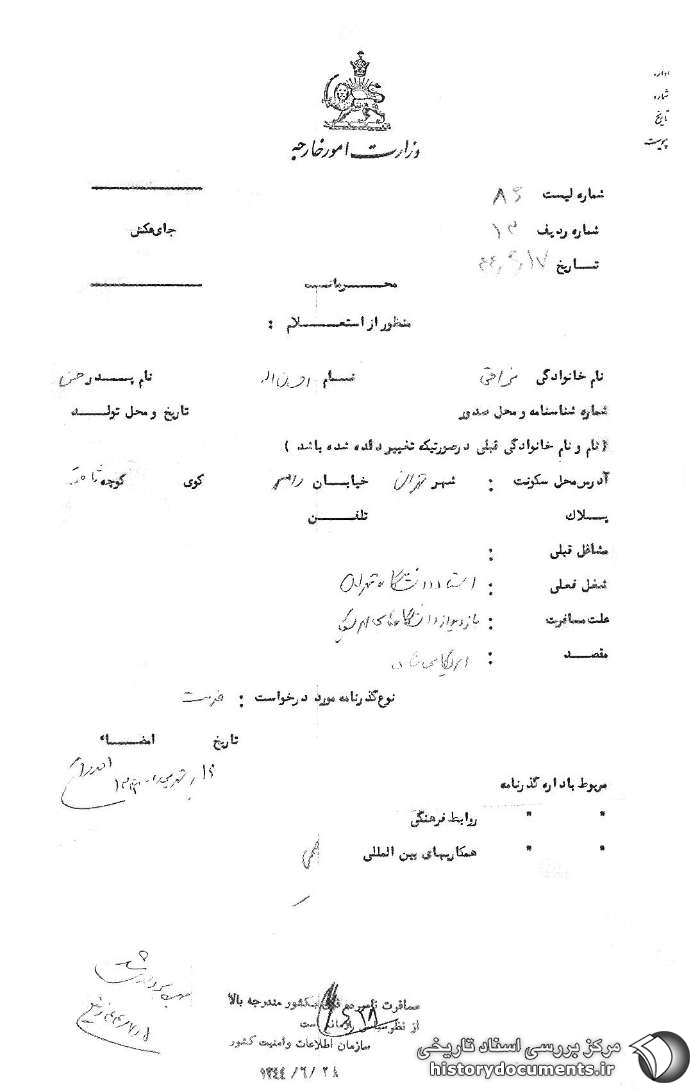 اداره
شماره
تاریخ
پیوست
وزارت امور خارجه
شماره لیست ۸۶
شماره ردیف ۱۳
جای عکس
تاریخ ۴۴٫۶٫۱۷
محرمانه
منظور از استعلام :
نام خانوادگی نراقی نام احسان اله نام پدر حسن
شماره شناسنامه و محل صدور تاریخ و محل تولد
( نام و نام خانوادگی قبلی درصورتیکه تغییر داده شده باشد )
آدرس محل سکونت : شهر تهران خیابان کوی کوچه
پلاک تلفن
مشاغل قبلی :
شغل فعلی : استاد دانشگاه تهران
علت مسافرت : بازدید از دانشگاههای امریکا
مقصد :
نوع گذرنامه مورد درخواست : خدمت
تاریخ امضاء
مربوط باداره گذرنامه
" " روابط فرهنگی
" " همکاریهای بین المللی
مسافرت نامبرده بکشور مندرجه بالا
از نظر است
سازمان اطلاعات وامنیت کشور
۱۳۴۴/۶/۲۸
مرکز بررسی اسناد تاریخی
historydocuments.ir